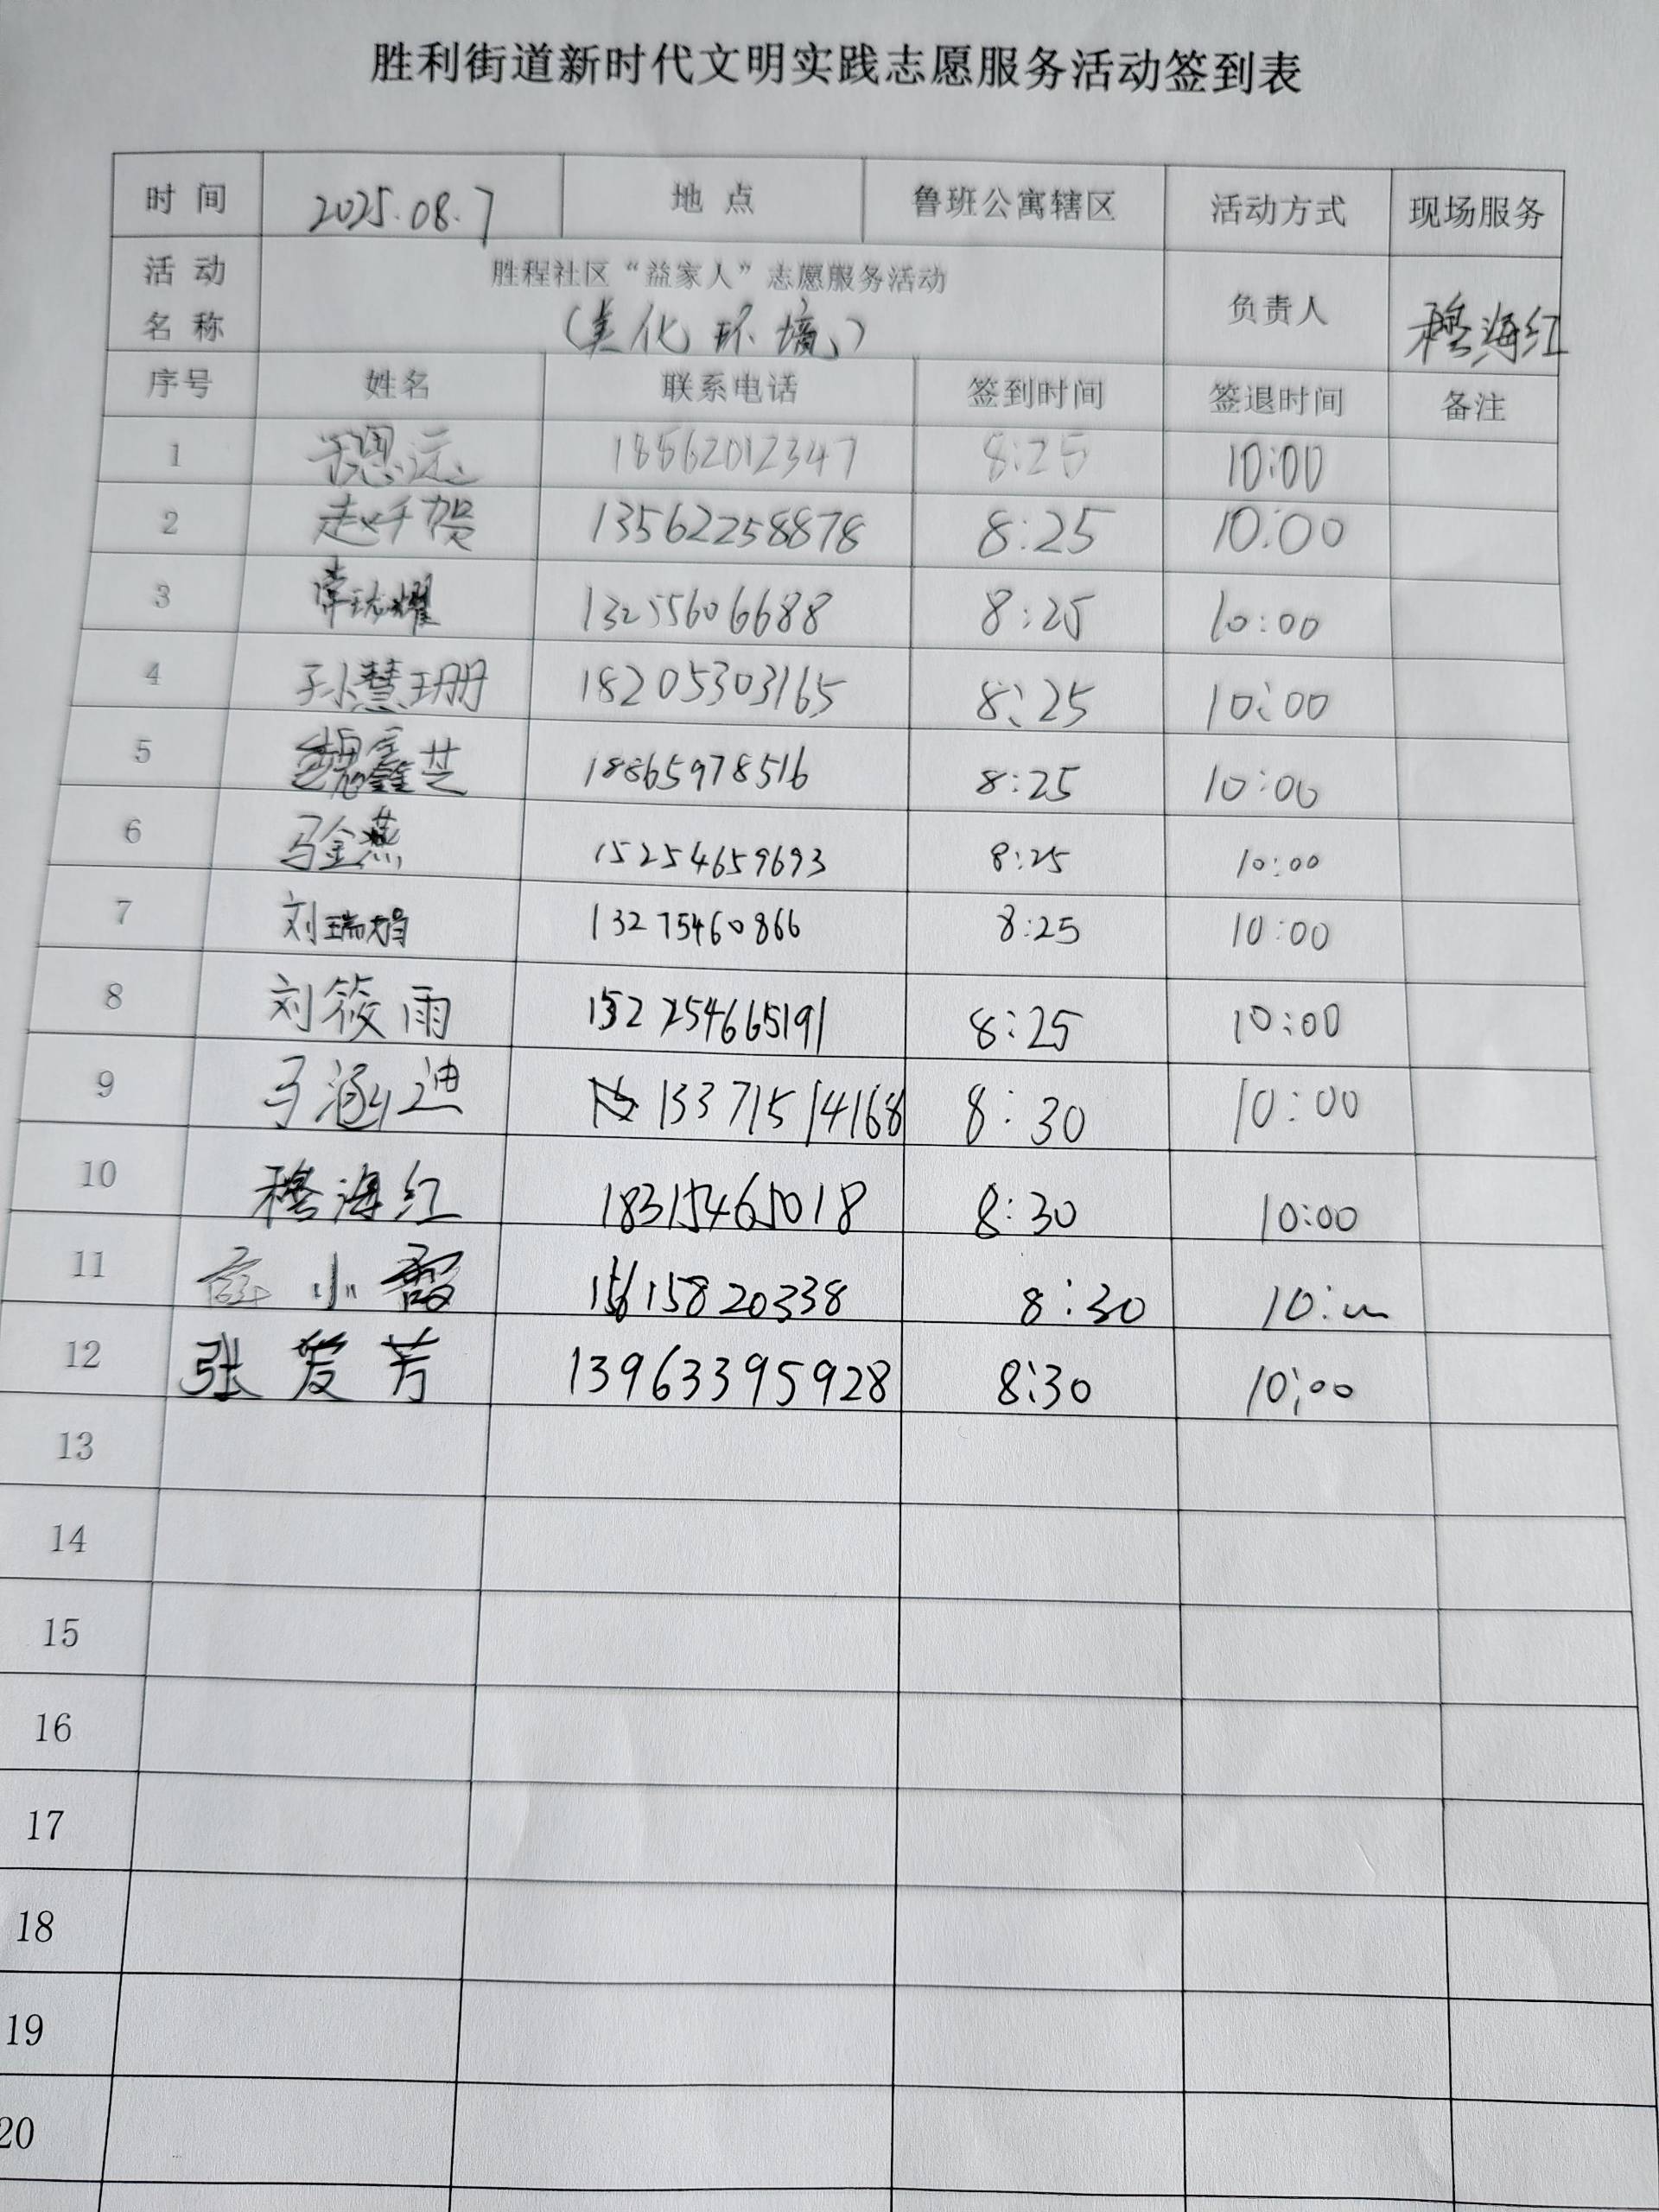 胜利街道新时代文明实践志愿服务活动签到表
时 间 2025.08.7 地 点 鲁班公寓辖区 活动方式 现场服务
活 动 名 称 胜程社区“益家人”志愿服务活动 (美化环境) 负责人 穆海红
序号 姓名 联系电话 签到时间 签退时间 备注
1 于恩远 18562012347 8:25 10:00
2 赵 贺 13562258878 8:25 10:00
3 耀 13255606688 8:25 10:00
4 孙慧珊 18205303165 8:25 10:00
5 魏鑫芝 18865978516 8:25 10:00
6 马金燕 15254659693 8:25 10:00
7 刘瑞娟 13275460866 8:25 10:00
8 刘筱雨 8:25 10:00
9 马涵迪 13371514168 8:30 10:00
10 穆海红 18315465018 8:30 10:00
11 小霞 15615820338 8:30 10:00
12 张爱芳 13963395928 8:30 10:00
13
14
15
16
17
18
19
20